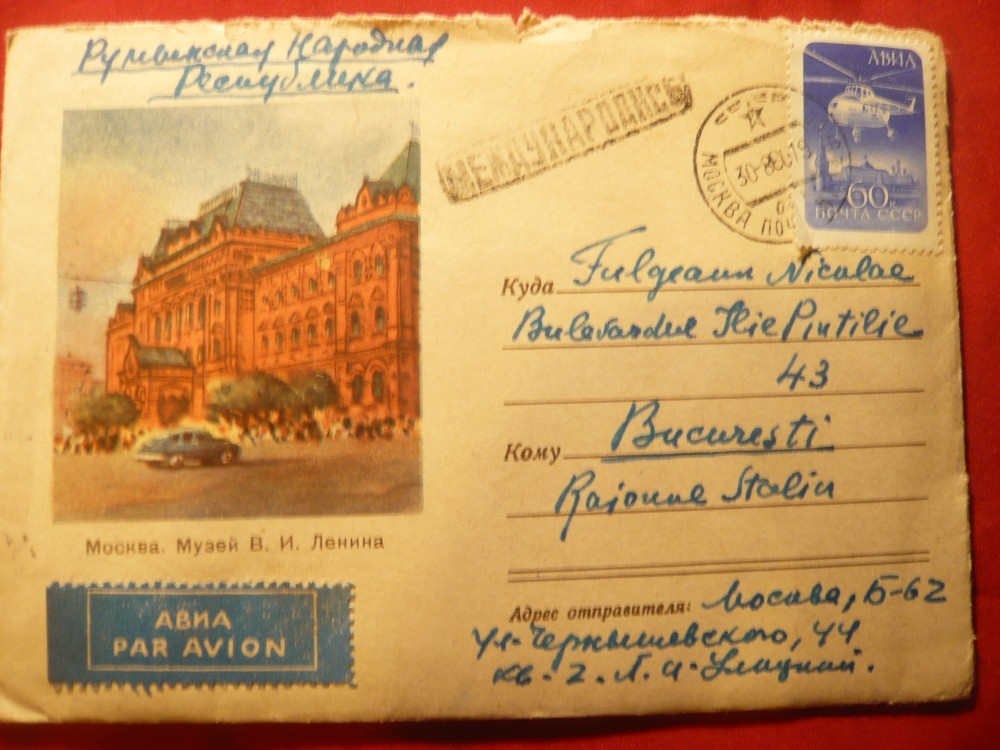 Румынская Народная
Республика.
МЕЖДУНАРОДНОЕ
МОСКВА
АВИА
60
ПОЧТА СССР
Куда Fulgeanu Nicolae
Bulevardul Ilie Pintilie
43
Кому Bucuresti
Raionul Stalin
Москва. Музей В. И. Ленина
АВИА
PAR AVION
Адрес отправителя: Москва, Б-62
ул. Чернышевского, 44
кв. 2. Л. И.